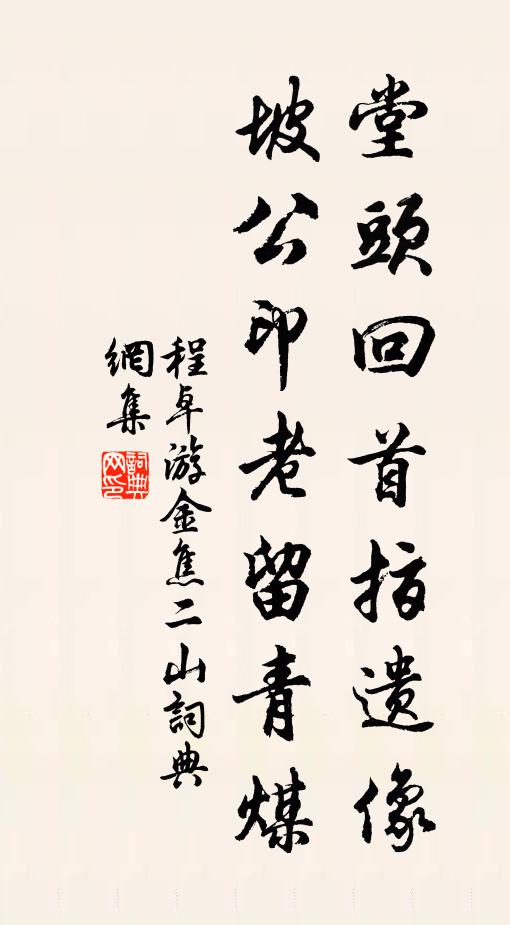 堂頭回首指遺像
坡公印老留青煤
程卓游金焦二山詞典
網集
詞典網印